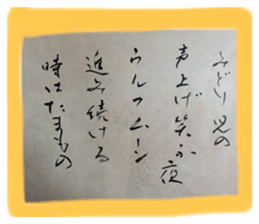 みどり児の
声上げ笑ふ夜
ウルフムーン
進み続ける
時はたまもの